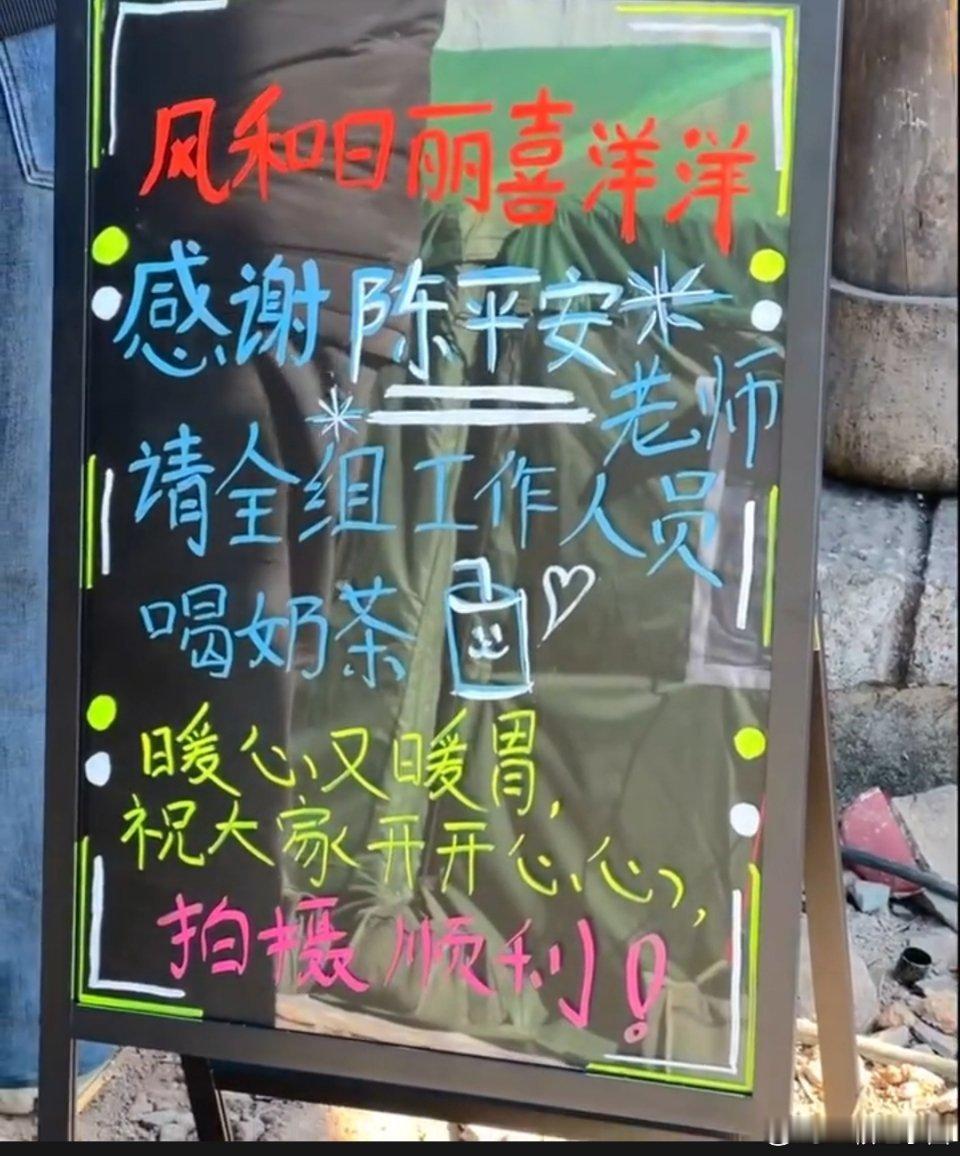 风和日丽喜洋洋
感谢陈平安
老师
请全组工作人员
喝奶茶
暖心又暖胃,
祝大家开开心心,
拍摄顺利!